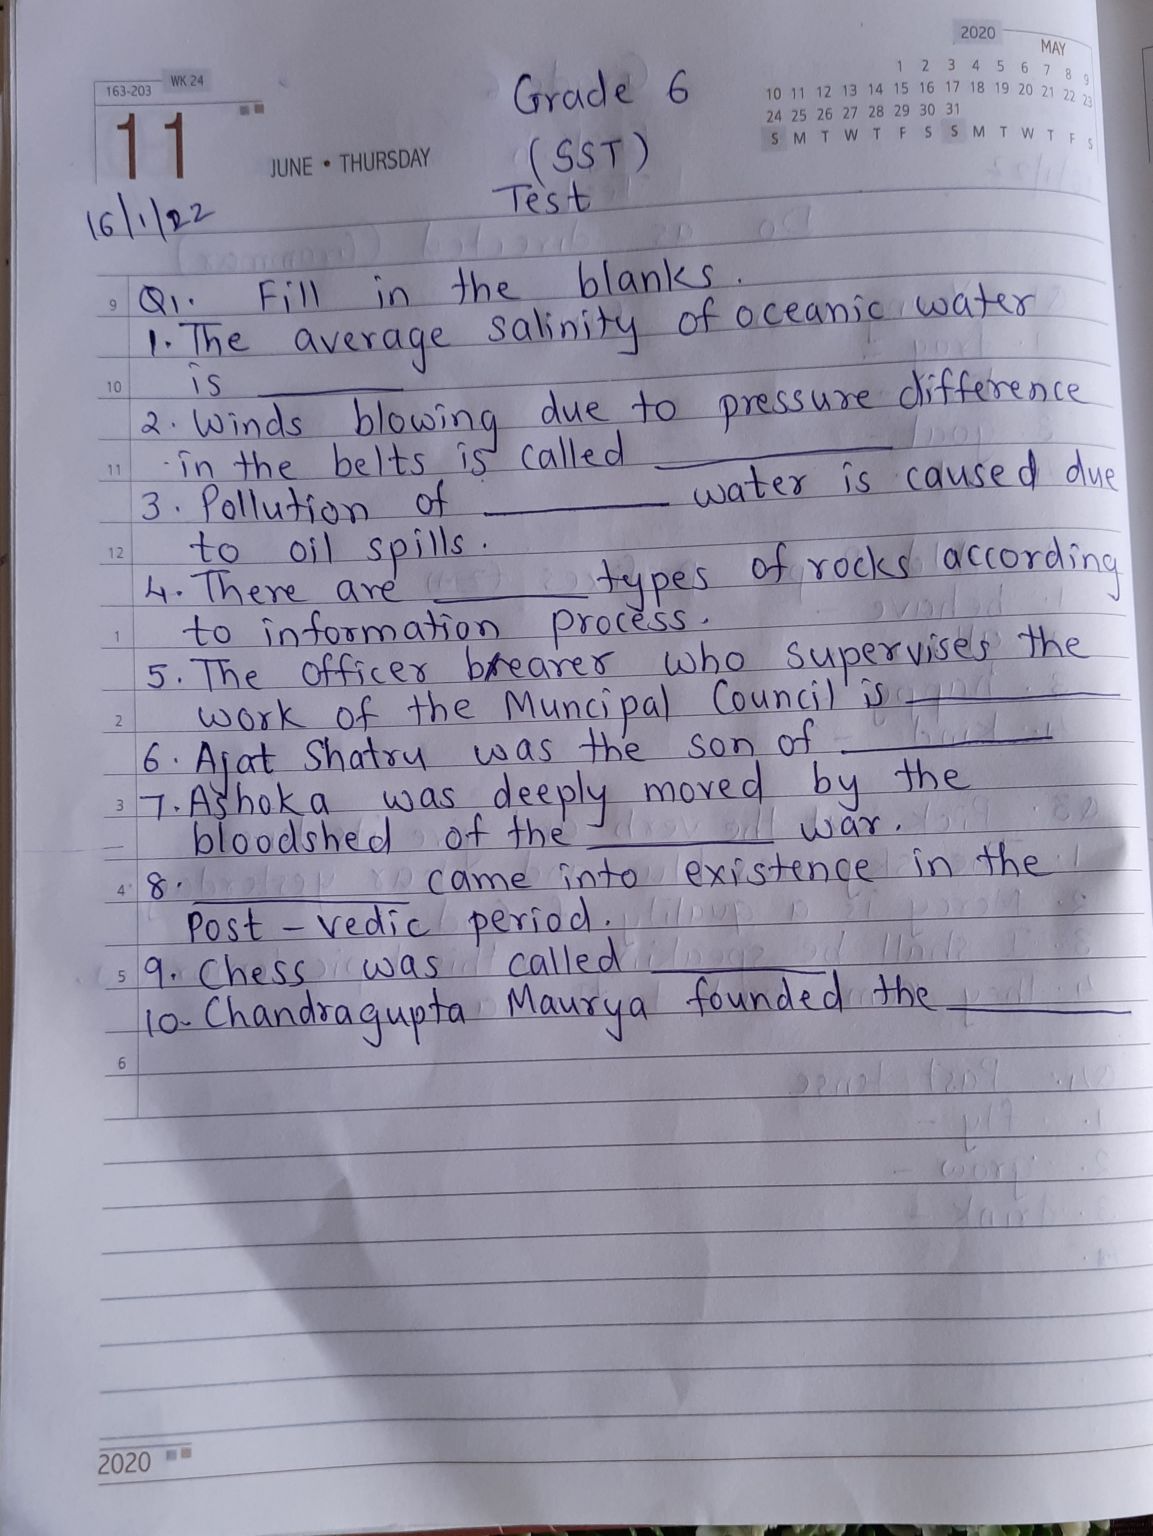 2020
MAY
1 2 3 4 5 6 7 8 9
10 11 12 13 14 15 16 17 18 19 20 21 22 23
24 25 26 27 28 29 30 31
S M T W T F S S M T W T F S
163-203 WK 24
11
JUNE • THURSDAY
Grade 6
(SST)
Test
16/1/22
9 Q1. Fill in the blanks.
1. The average salinity of oceanic water
10 is ________
2. Winds blowing due to pressure difference
11 in the belts is called ________
3. Pollution of ________ water is caused due
12 to oil spills.
4. There are ________ types of rocks according
1 to information process.
5. The officer bearer who supervises the
2 work of the Muncipal Council is ________
6. Ajat Shatru was the son of ________
3 7. Ashoka was deeply moved by the
bloodshed of the ________ war.
4 8. ________ came into existence in the
Post - vedic period.
5 9. Chess was called ________
10. Chandragupta Maurya founded the ________
6
2020